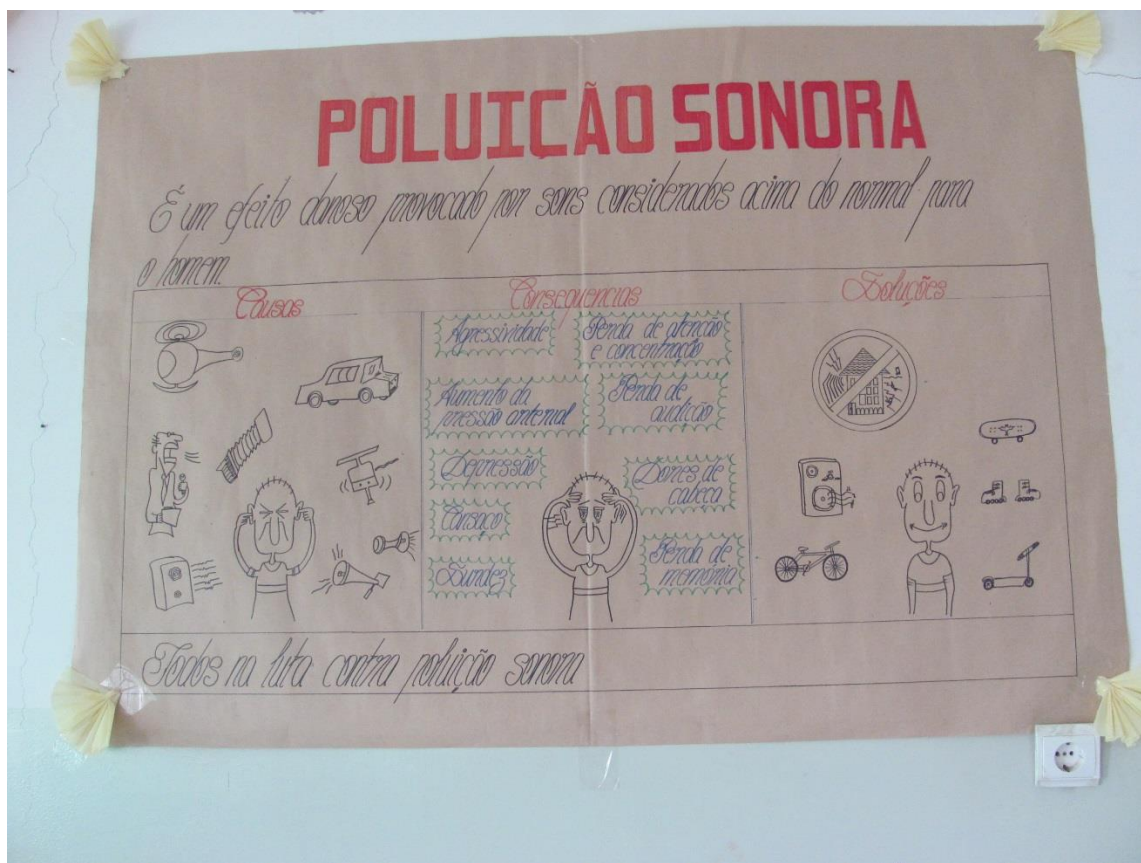 POLUIÇÃO SONORA
É um efeito danoso provocado por sons considerados acima do normal para
o homem.
Causas
Consequencias
Soluções
Agressividade
Perda de atenção
e concentração
Aumento da
pressão arterial
Perda de
audição
Depressão
Dores de
cabeça
Cansaço
Surdez
Perda de
memória
Todos na luta contra poluição sonora